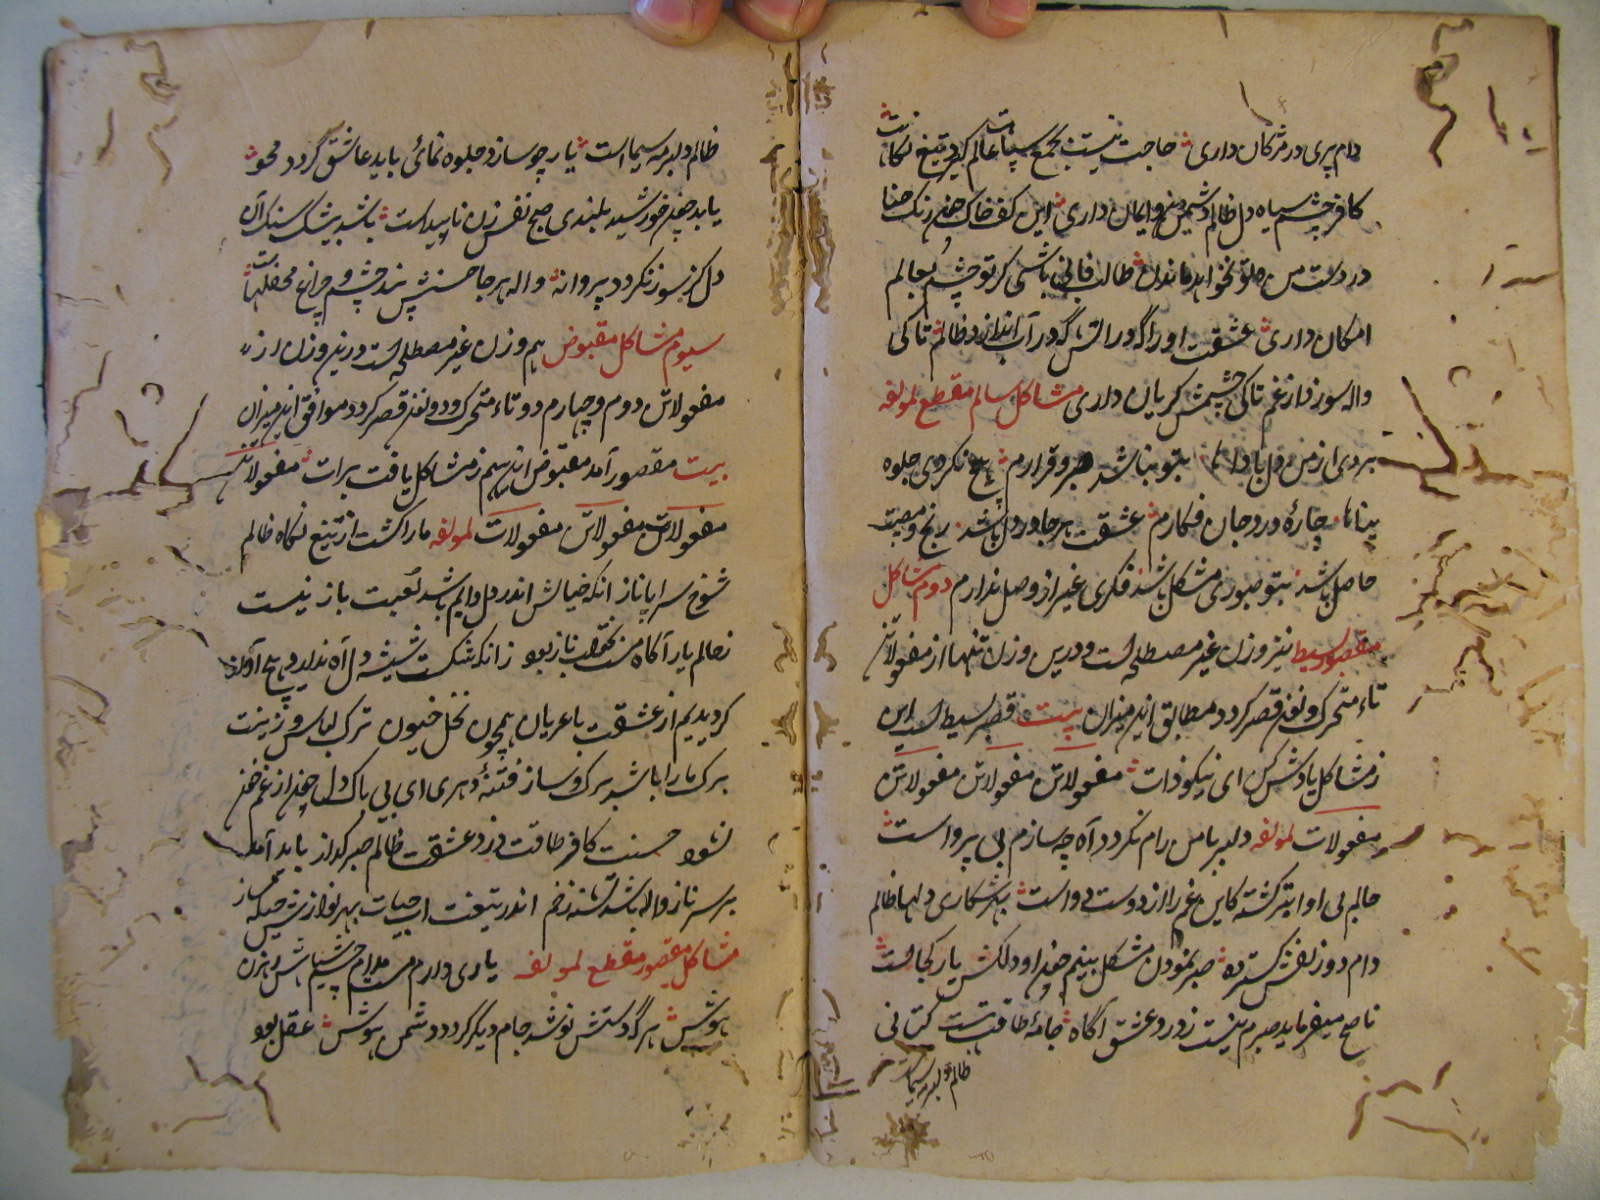 دام پری در مژکان داری حاجت نیست بجمع سپاهت عالم کیرد تیغ نکاهت
کافر چشم سیاه دل ظالم دشمن دین و ایمان داری این کف خاک چند رنک حنا
در دست من و تو نخواهد ماندن طالب فانی باشی کر تو چشم بعالم
امکان داری عشقت او را گه در آتش گه در آب اندازد ظالم تا کی
واله سوزد از غم تا کی چشمش کریان داری مشاکل سالم مقطع لمولفه
بردی از من دل با دلها بتو نباشد صبر و قرارم هیچ نکردی جلوه
چارهٔ درد جان فکارم عشقت هر جا در دل باشد رنج و مصیبت
حاصل باشد بتو صبوری مشکل باشد فکری غیر از وصل ندارم دوم مشاکل
مقصور بسیط نیز وزن غیر مصطلحست و درین وزن تنها از مفعولاتن
تاء متحرک و نون قصر کردد مطابق این میزان بیت قصر بسیط است این
ز مشاکل یادش کن ای نیکو ذات مفعولاتن مفعولاتن مفعولاتن
مفعولات لمولفه دلبر با من رام نکردد آه چه سازم بی پرواست
حالم بی او ابتر کشته کاین غم را از دوست دواست بهر شکاری دلها ظالم
دام دو زلفش کسترده صبر نمودن مشکل بینم چند او دلکش یار کجاست
ناصح میفرماید صبرم نیست ز درد عشق آگاه جامهٔ طاقت هست کتانی
ظالم دلبر مه سیما
ظالم دلبر مه سیماست یار چو سازد جلوه نمائی باید عاشق گردد محو
یابد چند خورشید بلندی صبح نفس زن ناپیداست باشد بیشک سنک آن
دل کز سوز نکردد پروانه واله هر جا حسنش بیند چشم و چراغ محفلهاست
سیوم مشاکل مقبوض هم وزن غیر مصطلحست و درین وزن از
مفعولاتن دوم و چهارم دو تاء متحرک و دو نون قصر کردد موافق این میزان
بیت مقصور آمد مقبوض این سیم ز مشاکل یافت برات مفعولاتن
مفعولات مفعولاتن مفعولات لمولفه ما را کشت از تیغ نکاه ظالم
شوخ سراپا ناز انکه خیالش اندر دل دایم باشد لعبت باز نیست
ز حالم یار آکاه بود زانکه شکست شیشه دل آه ندارد هیچ آواز
کردیدیم از عشقت ما عریان همچون نخل خیون ترک لباس و زینت
برک ما را باشد برک و ساز فتنهٔ دهری ای بی باک دل چند از غم
نشود حسنت کافر طاقت دزد عشقت ظالم صبر کداز باید آمد
بر سر ناز واله باشد تشنه زخم اندر تیغت آب حیات بهر نوازش حیله ساز
مشاکل مقصور مقطع لمولفه یاری دارم مست مدام چشم سیاهش رهزن
هوش هر که ز دستش نوشد جام دیگر کردد دشمن هوش عقل بود